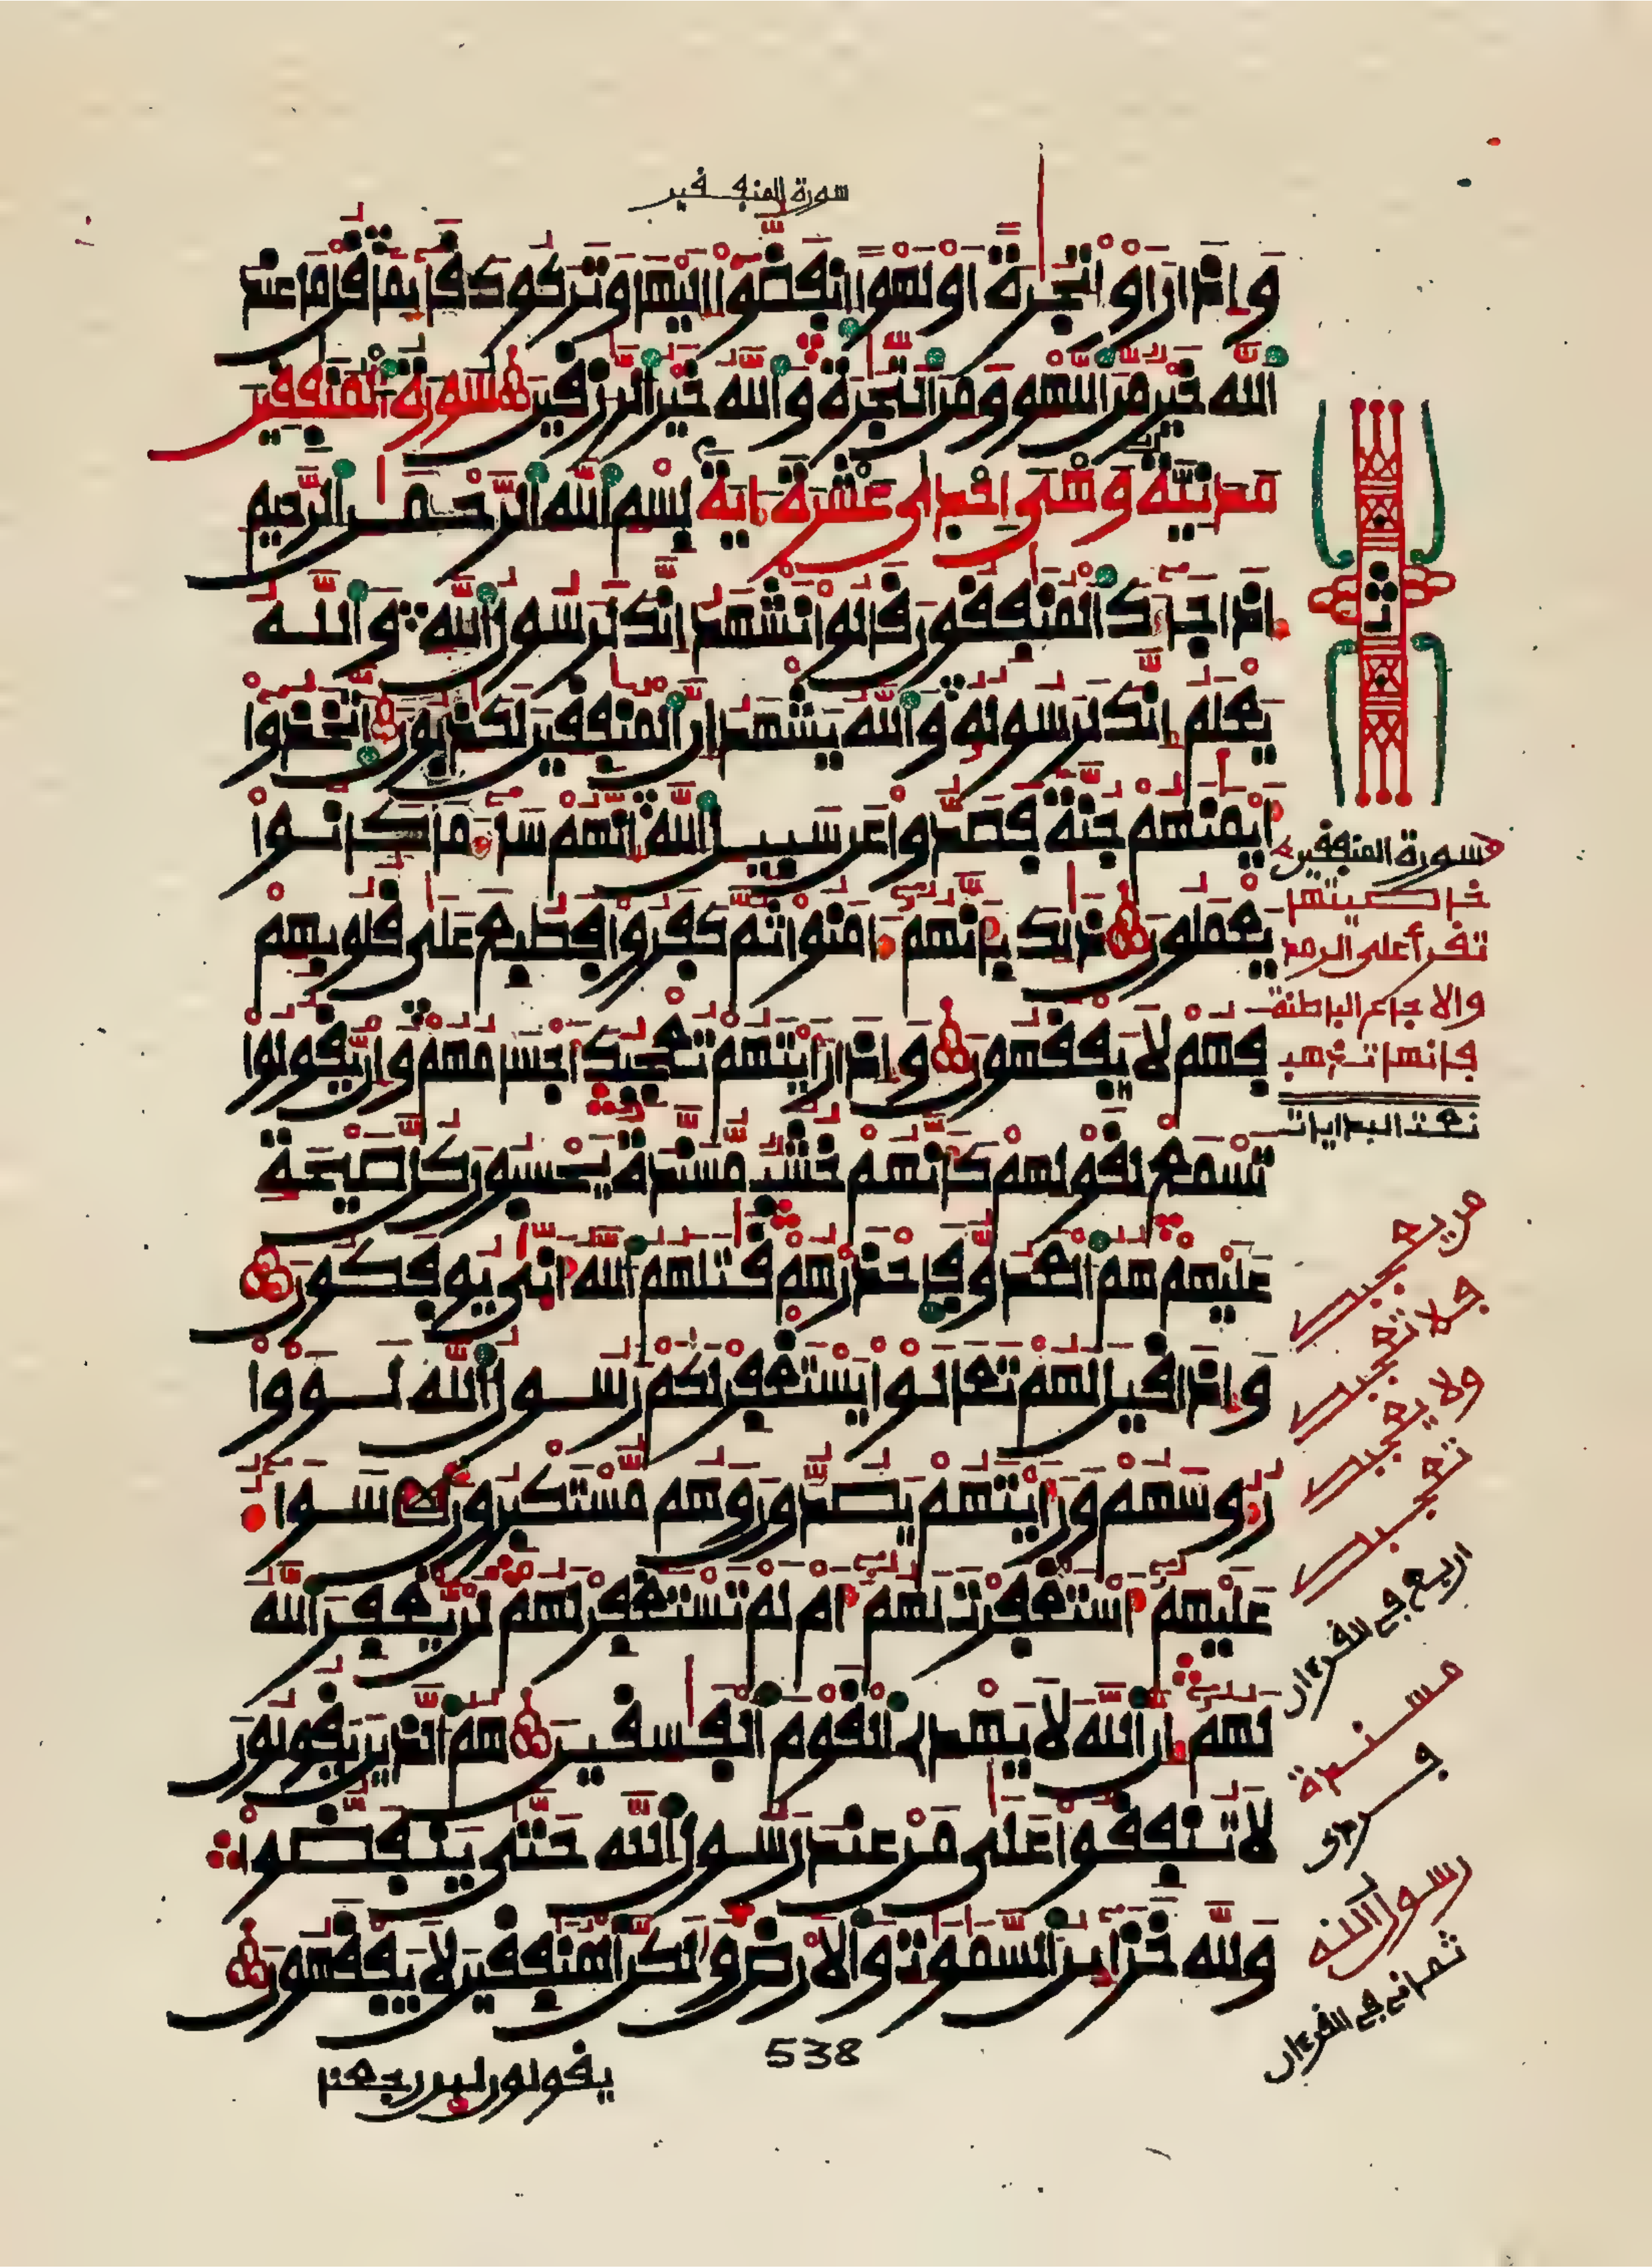 سورة المنٰفقين
وَإِذَا رَأَوْا تِجَٰرَةً أَوْ لَهْوًا اِنفَضُّوا إِلَيْهَا وَتَرَكُوكَ قَآئِمًا قُلْ مَا عِندَ
اَللَّهِ خَيْرٌ مِّنَ اَللَّهْوِ وَمِنَ اَلتِّجَٰرَةِ وَاللَّهُ خَيْرُ اَلرَّٰزِقِينَ سورة المنٰفقين
مدنيّة وهي إحدى عشرة ءاية بِسْمِ اِللَّهِ اِلرَّحْمَٰنِ اِلرَّحِيمِ
إِذَا جَآءَكَ اَلْمُنَٰفِقُونَ قَالُوا نَشْهَدُ إِنَّكَ لَرَسُولُ اُللَّهِ وَاللَّهُ
يَعْلَمُ إِنَّكَ لَرَسُولُهُ وَاللَّهُ يَشْهَدُ إِنَّ اَلْمُنَٰفِقِينَ لَكَٰذِبُونَ اَتَّخَذُوا
أَيْمَٰنَهُمْ جُنَّةً فَصَدُّوا عَن سَبِيلِ اِللَّهِ إِنَّهُمْ سَآءَ مَا كَانُوا
يَعْمَلُونَ ذَٰلِكَ بِأَنَّهُمْ ءَامَنُوا ثُمَّ كَفَرُوا فَطُبِعَ عَلَىٰ قُلُوبِهِمْ
فَهُمْ لَا يَفْقَهُونَ وَإِذَا رَأَيْتَهُمْ تُعْجِبُكَ أَجْسَامُهُمْ وَإِن يَّقُولُوا
تَسْمَعْ لِقَوْلِهِمْ كَأَنَّهُمْ خُشُبٌ مُّسَنَّدَةٌ يَحْسِبُونَ كُلَّ صَيْحَةٍ
عَلَيْهِمْ هُمُ اُلْعَدُوُّ فَاحْذَرْهُمْ قَٰتَلَهُمُ اُللَّهُ أَنَّىٰ يُوفَكُونَ
وَإِذَا قِيلَ لَهُمْ تَعَالَوْا يَسْتَغْفِرْ لَكُمْ رَسُولُ اُللَّهِ لَوَوْا
رُءُوسَهُمْ وَرَأَيْتَهُمْ يَصُدُّونَ وَهُم مُّسْتَكْبِرُونَ سَوَآءٌ
عَلَيْهِمْ أَسْتَغْفَرْتَ لَهُمْ أَمْ لَمْ تَسْتَغْفِرْ لَهُمْ لَن يَّغْفِرَ اَللَّهُ
لَهُمْ إِنَّ اَللَّهَ لَا يَهْدِي اِلْقَوْمَ اَلْفَٰسِقِينَ هُمُ اُلَّذِينَ يَقُولُونَ
لَا تُنفِقُوا عَلَىٰ مَنْ عِندَ رَسُولِ اِللَّهِ حَتَّىٰ يَنفَضُّوا
وَلِلَّهِ خَزَآئِنُ اُلسَّمَٰوَٰتِ وَالْأَرْضِ وَلَٰكِنَّ اَلْمُنَٰفِقِينَ لَا يَفْقَهُونَ
538
يقولون لين رجعنا
سورة المنٰفقين
خاصيتها
تقرأ على الرمد
والاوجاع الباطنة
فانها تذهب
نعت البدايات
من يعجبك
فلا تعجبك
ولا يعجبك
تعجبك
اربع في القرءان
مسندة
فردى
رسول الله
ثماني في القرءان